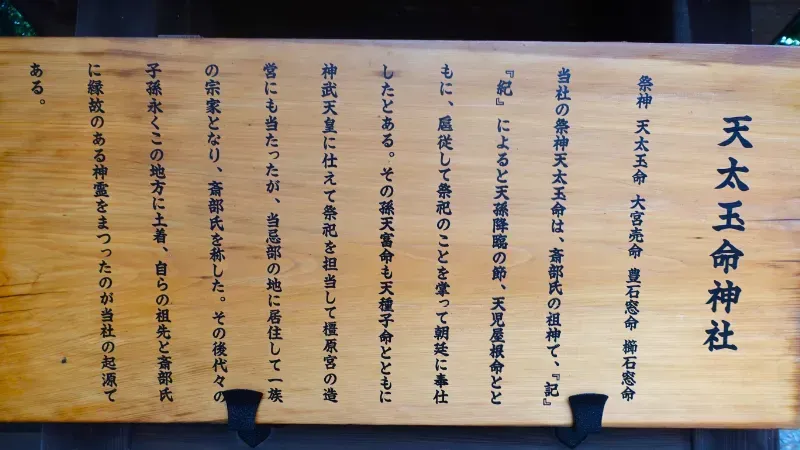 天太玉命神社
祭神 天太玉命 大宮売命 豊石窓命 櫛石窓命
当社の祭神天太玉命は、斎部氏の祖神で、『記』
『紀』によると天孫降臨の節、天児屋根命とと
もに、扈従して祭祀のことを掌って朝廷に奉仕
したとある。その孫天富命も天種子命とともに
神武天皇に仕えて祭祀を担当して橿原宮の造
営にも当たったが、当忌部の地に居住して一族
の宗家となり、斎部氏を称した。その後代々の
子孫永くこの地方に土着、自らの祖先と斎部氏
に縁故のある神霊をまつったのが当社の起源で
ある。